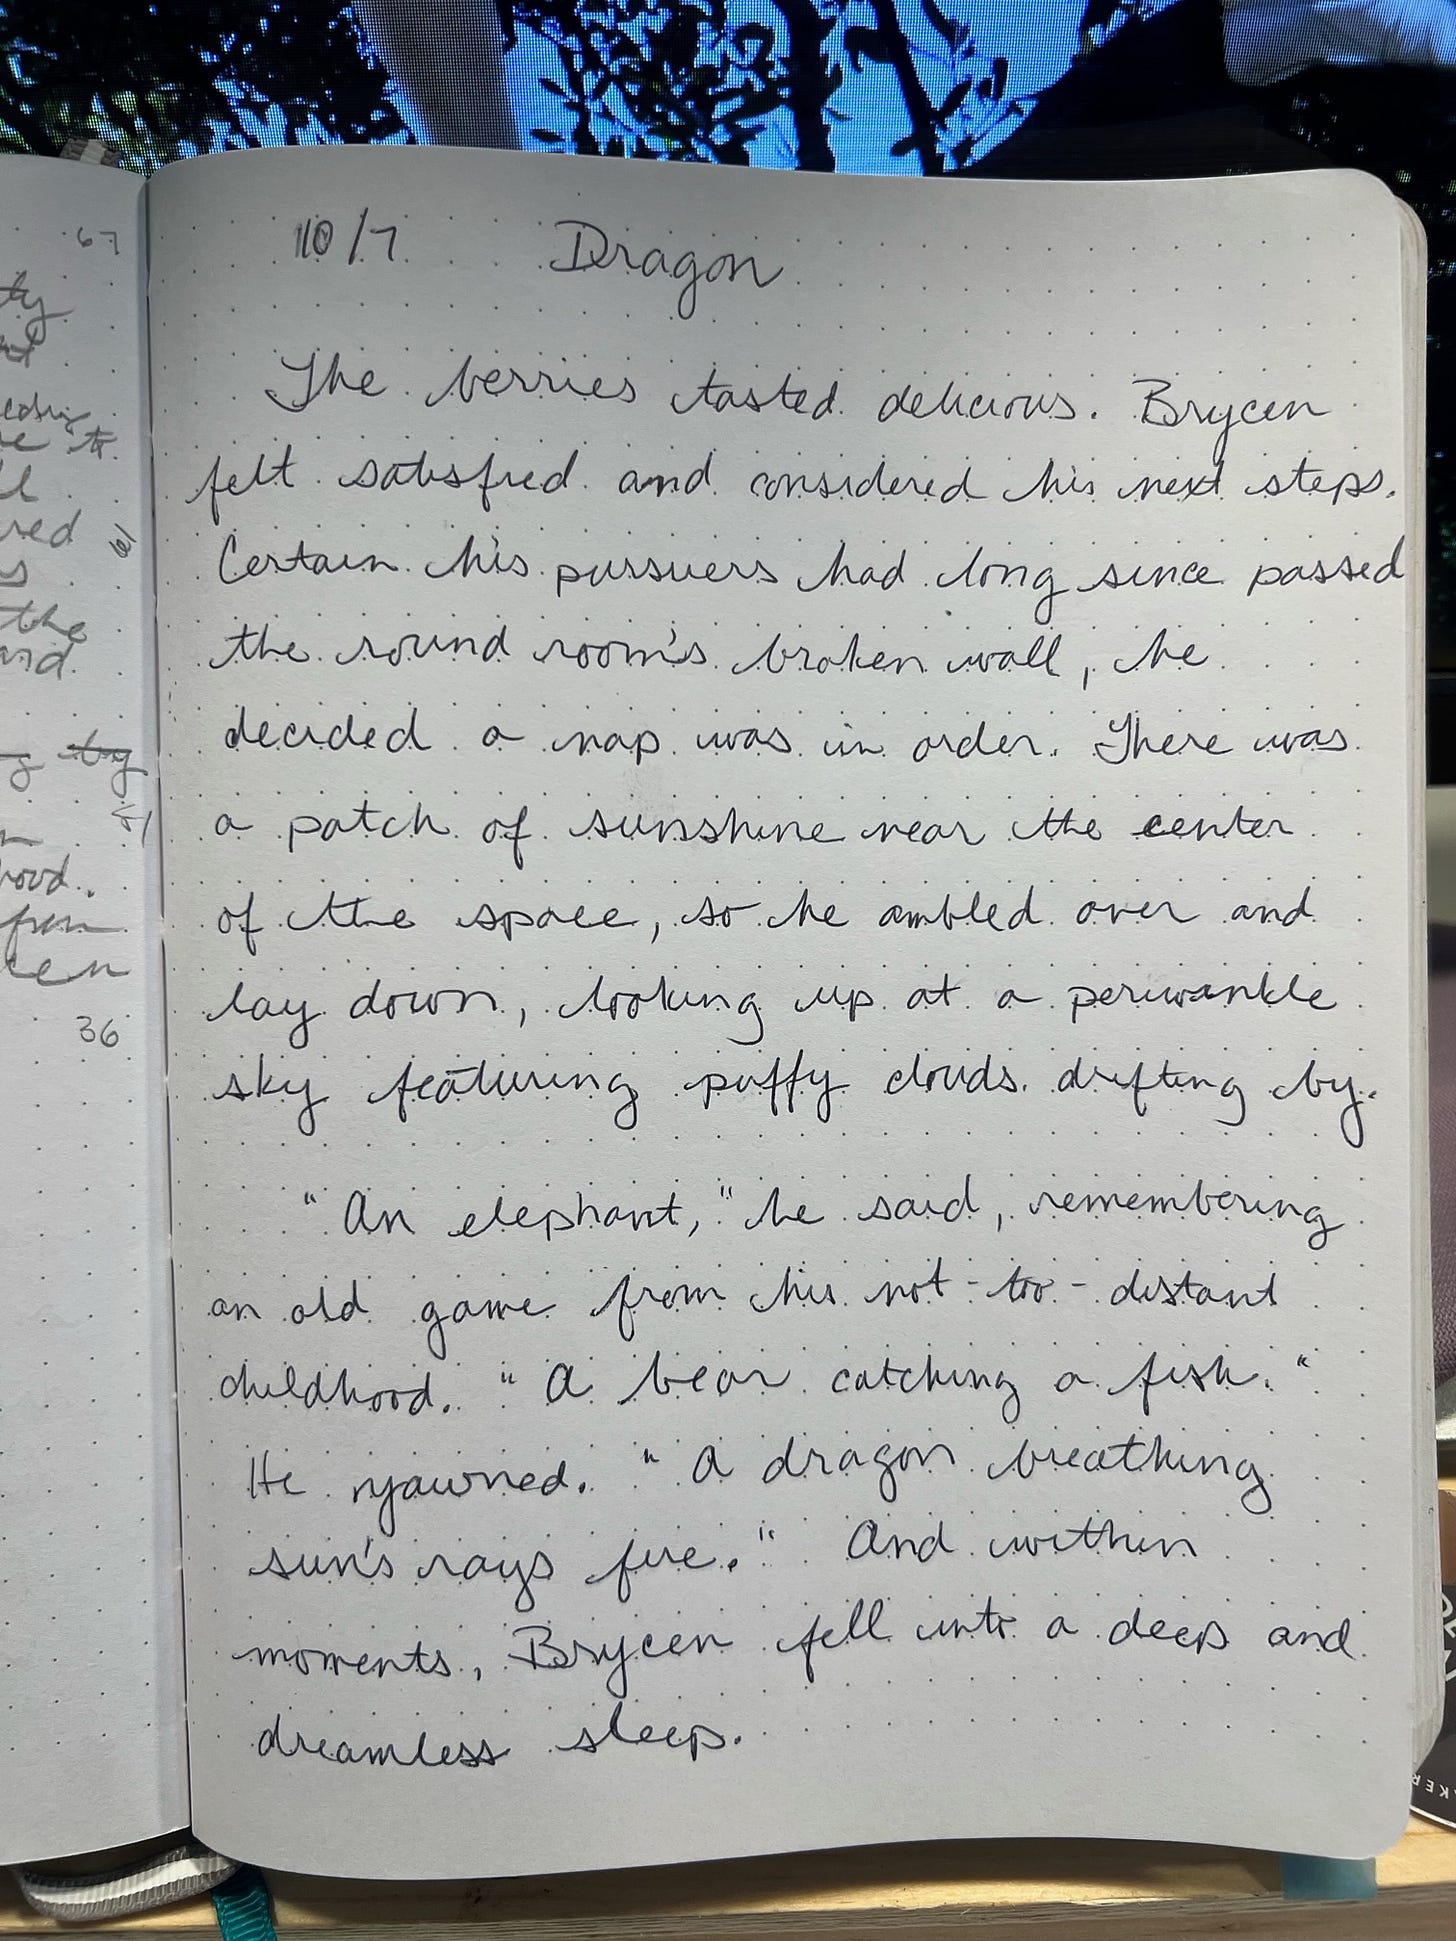 67
the
36
10/7 Dragon
The berries tasted delicious. Brycen
felt satisfied and considered his next steps.
Certain his pursuers had long since passed
the round room's broken wall, he
decided a nap was in order. There was
a patch of sunshine near the center
of the space, so he ambled over and
lay down, looking up at a periwinkle
sky featuring puffy clouds drifting by.
"An elephant," he said, remembering
an old game from his not-too-distant
childhood. "A bear catching a fish."
He yawned. "A dragon breathing
sun's rays fire." And within
moments, Brycen fell into a deep and
dreamless sleep.